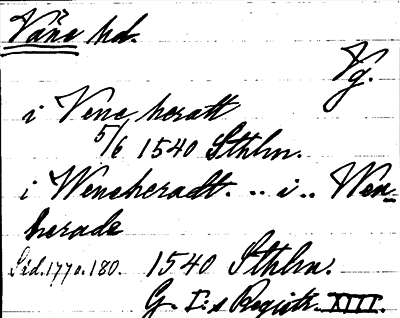 Väne hd.
Vg.
i Vene heratt
5/6 1540 Sthlm.
i Weneheradt. .. i .. Wen-
herade
Sid. 177 o. 180. 1540 Sthlm.
G. I:s Registr. XIII.